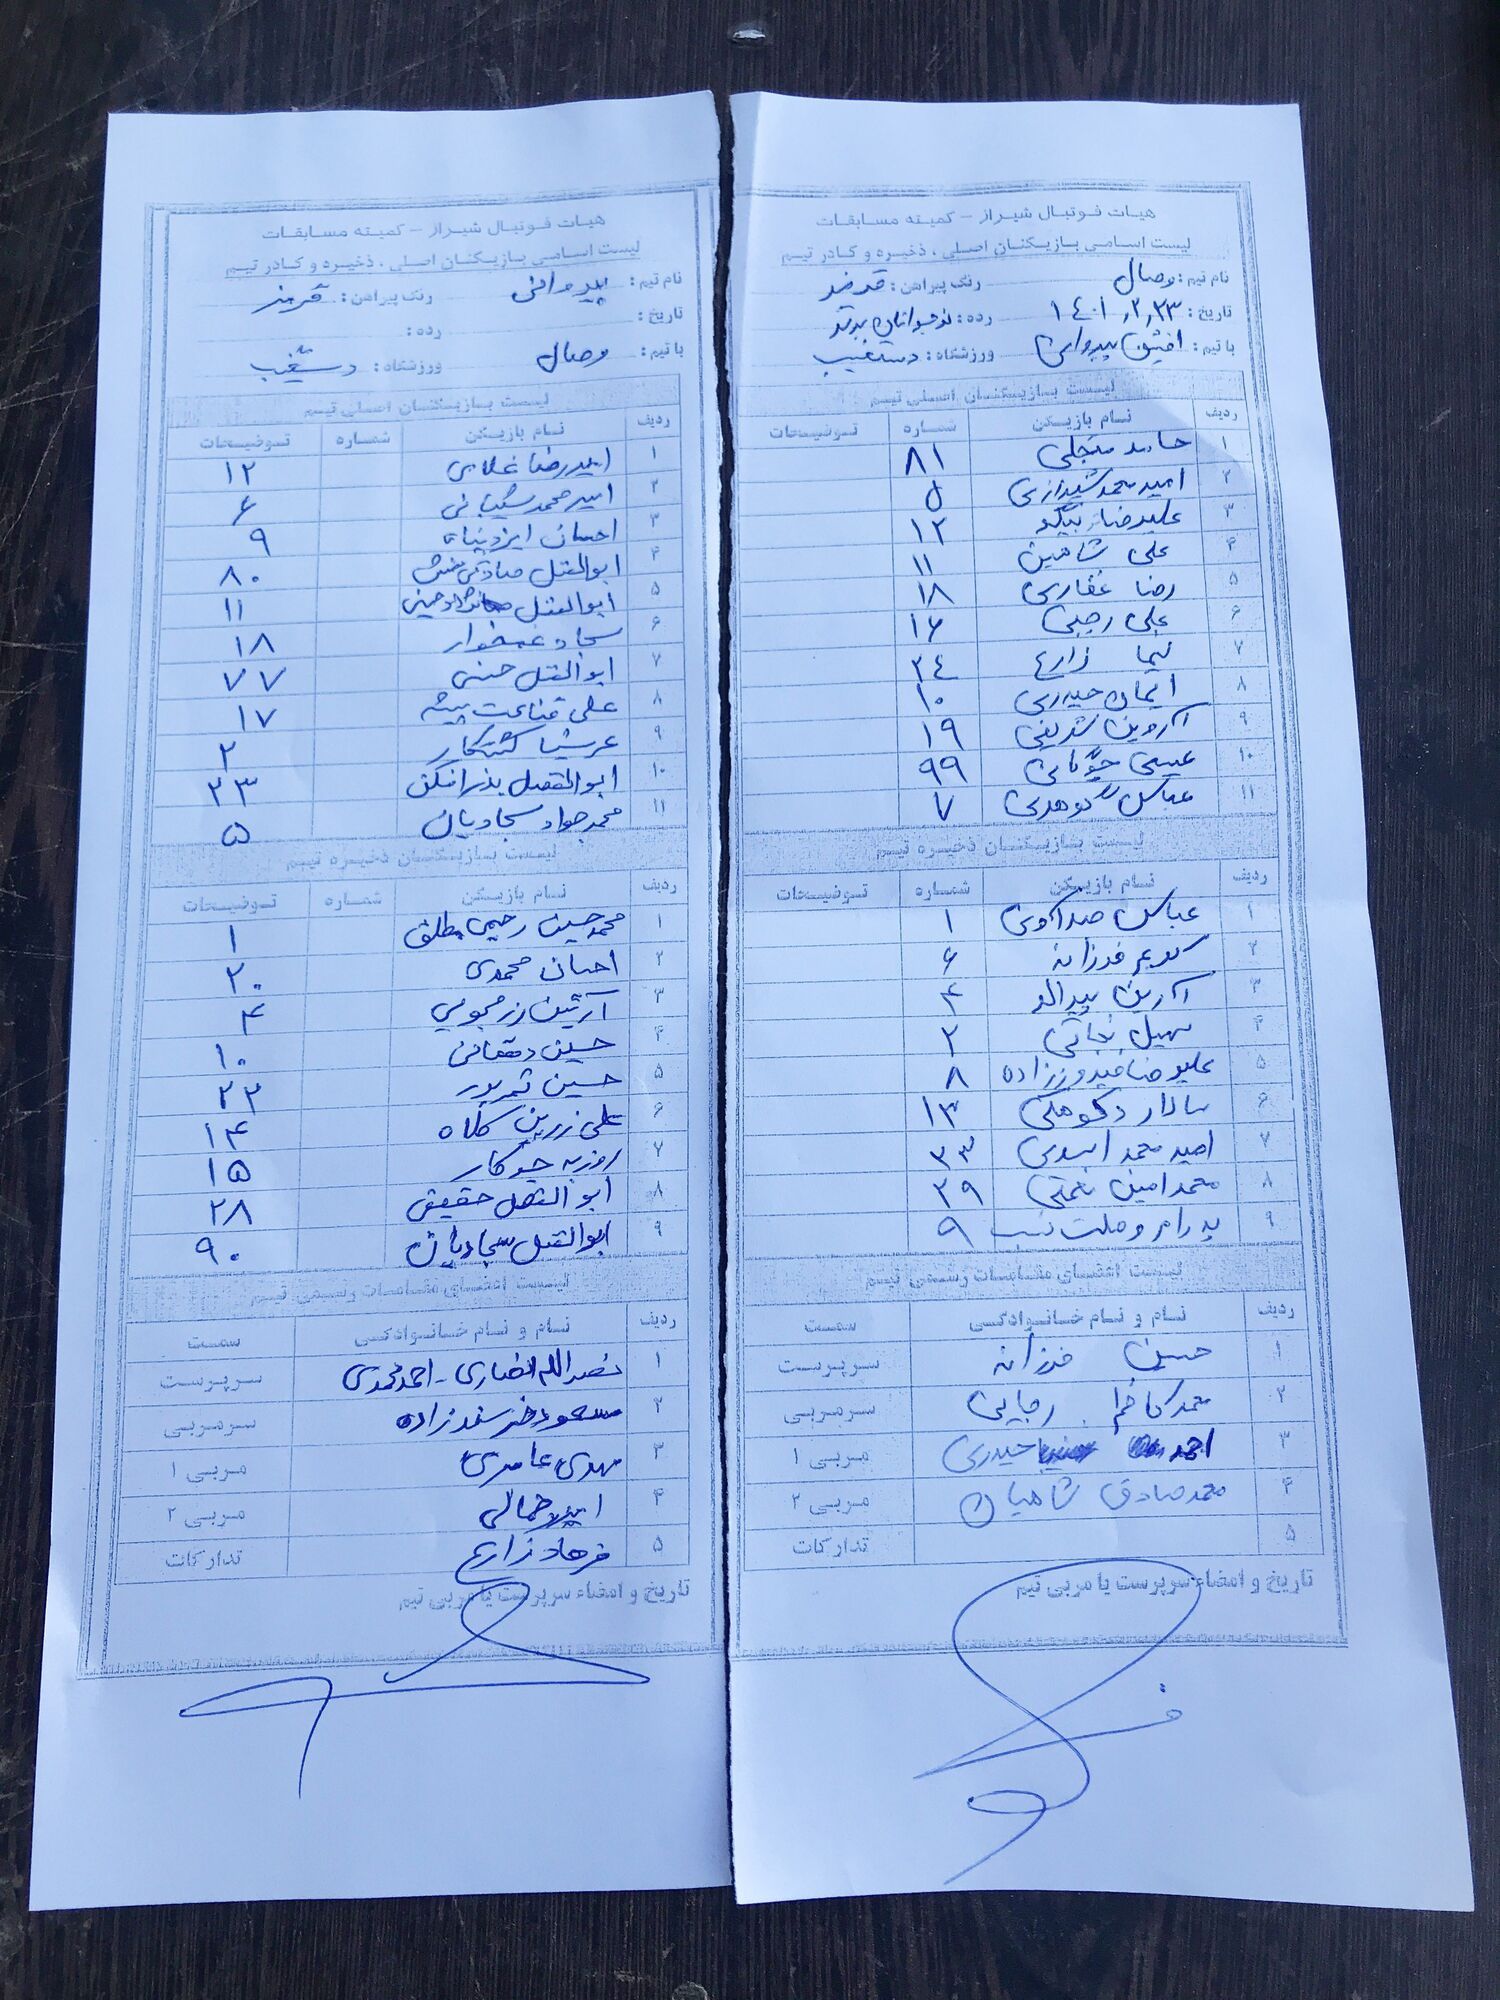 هیات فوتبال شیراز - کمیته مسابقات
لیست اسامی بازیکنان اصلی ، ذخیره و کادر تیم
نام تیم : وصال رنگ پیراهن : قرمز
تاریخ : ۱۴۰۱,۲,۲۳ رده : نوجوانان برتر
با تیم : افشین پیروانی ورزشگاه : دستغیب
لیست بازیکنان اصلی تیم
ردیف نام بازیکن شماره توضیحات
۱ حامد متجلی ۸۱
۲ امیدمحمد شیرازی ۵
۳ علیرضا بیگلو ۱۲
۴ علی شاهین ۱۱
۵ رضا غفاری ۱۸
۶ علی رجبی ۱۶
۷ نیما زارع ۲۴
۸ ایمان حیدری ۱۰
۹ آروین شریفی ۱۹
۱۰ عیسی ۹۹
۱۱ عباس ۷
لیست بازیکنان ذخیره تیم
ردیف نام بازیکن شماره توضیحات
۱ عباس ۱
۲ کریم فرزانه ۶
۳ آرین پیرالو ۴
۴ سهیل نجاتی ۲
۵ علیرضا فیروززاده ۸
۶ سالار دکوهکی ۱۳
۷ امید محمد اسدی ۳۳
۸ محمدامین نعمتی ۲۹
۹ پدرام وصلت نسب ۹
لیست اعضای مقامات رسمی تیم
ردیف نام و نام خانوادگی سمت
۱ حسین فرزانه سرپرست
۲ محمدکاظم رجایی سرمربی
۳ احمد حیدری مربی ۱
۴ محمدصادق شاهیان مربی ۲
۵ تدارکات
تاریخ و امضاء سرپرست یا مربی تیم
هیات فوتبال شیراز - کمیته مسابقات
لیست اسامی بازیکنان اصلی ، ذخیره و کادر تیم
نام تیم : پیروانی رنگ پیراهن : قرمز
تاریخ : رده :
با تیم : وصال ورزشگاه : دستغیب
لیست بازیکنان اصلی تیم
ردیف نام بازیکن شماره توضیحات
۱ امیررضا غلامی ۱۲
۲ امیرمحمد شیبانی ۶
۳ احسان ایزدپناه ۹
۴ ابوالفضل صادقی منش ۸۰
۵ ابوالفضل ۱۱
۶ سجاد غمخوار ۱۸
۷ ابوالفضل حسنی ۷۷
۸ علی قناعت پیشه ۱۷
۹ عرشیا کشتکار ۲
۱۰ ابوالفضل بذرافکن ۳۳
۱۱ محمدجواد سجادیان ۵
لیست بازیکنان ذخیره تیم
ردیف نام بازیکن شماره توضیحات
۱ محمدحسین رحیمی مطلق ۱
۲ احسان محمدی ۲۰
۳ آرتین رزمجویی ۴
۴ حسین دهقانی ۱۰
۵ حسین ثمرپور ۲۲
۶ علی زرین کلاه ۱۴
۷ روزبه جوکار ۱۵
۸ ابوالفضل حقیقی ۲۸
۹ ابوالفضل سجادیان ۹۰
لیست اعضای مقامات رسمی تیم
ردیف نام و نام خانوادگی سمت
۱ نصرالله انصاری - احمد محمدی سرپرست
۲ مسعود خرسندزاده سرمربی
۳ مهدی عامری مربی ۱
۴ امیر جمالی مربی ۲
۵ فرهاد زارع تدارکات
تاریخ و امضاء سرپرست یا مربی تیم